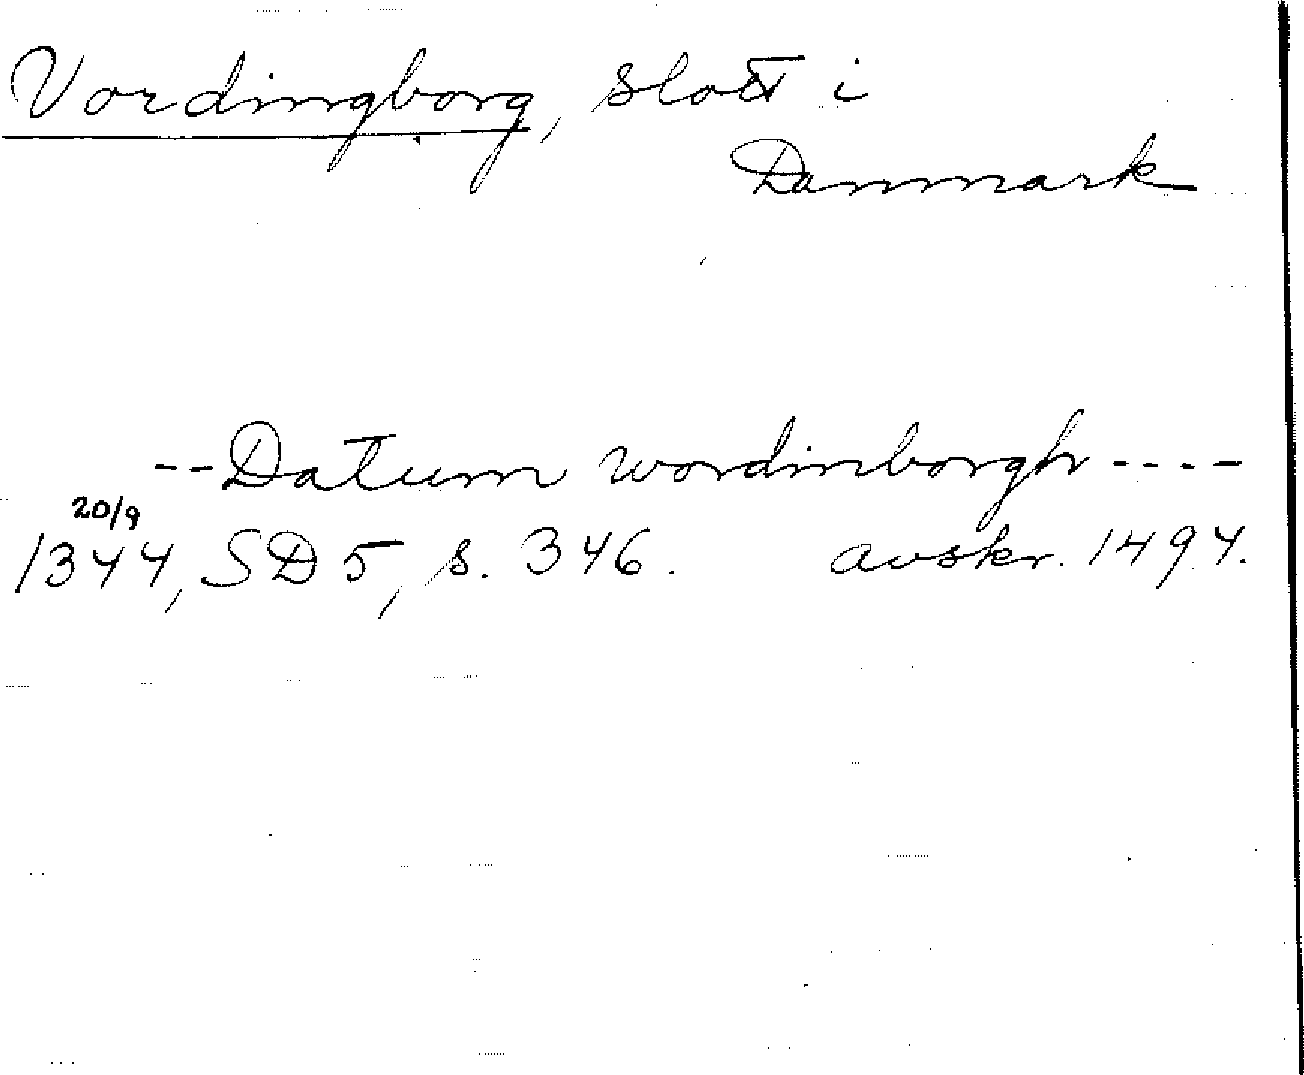 Vordingborg, slott i
Danmark
--Datum wordinborgh----
20/9
1344, SD 5, s. 346. avskr. 1494.